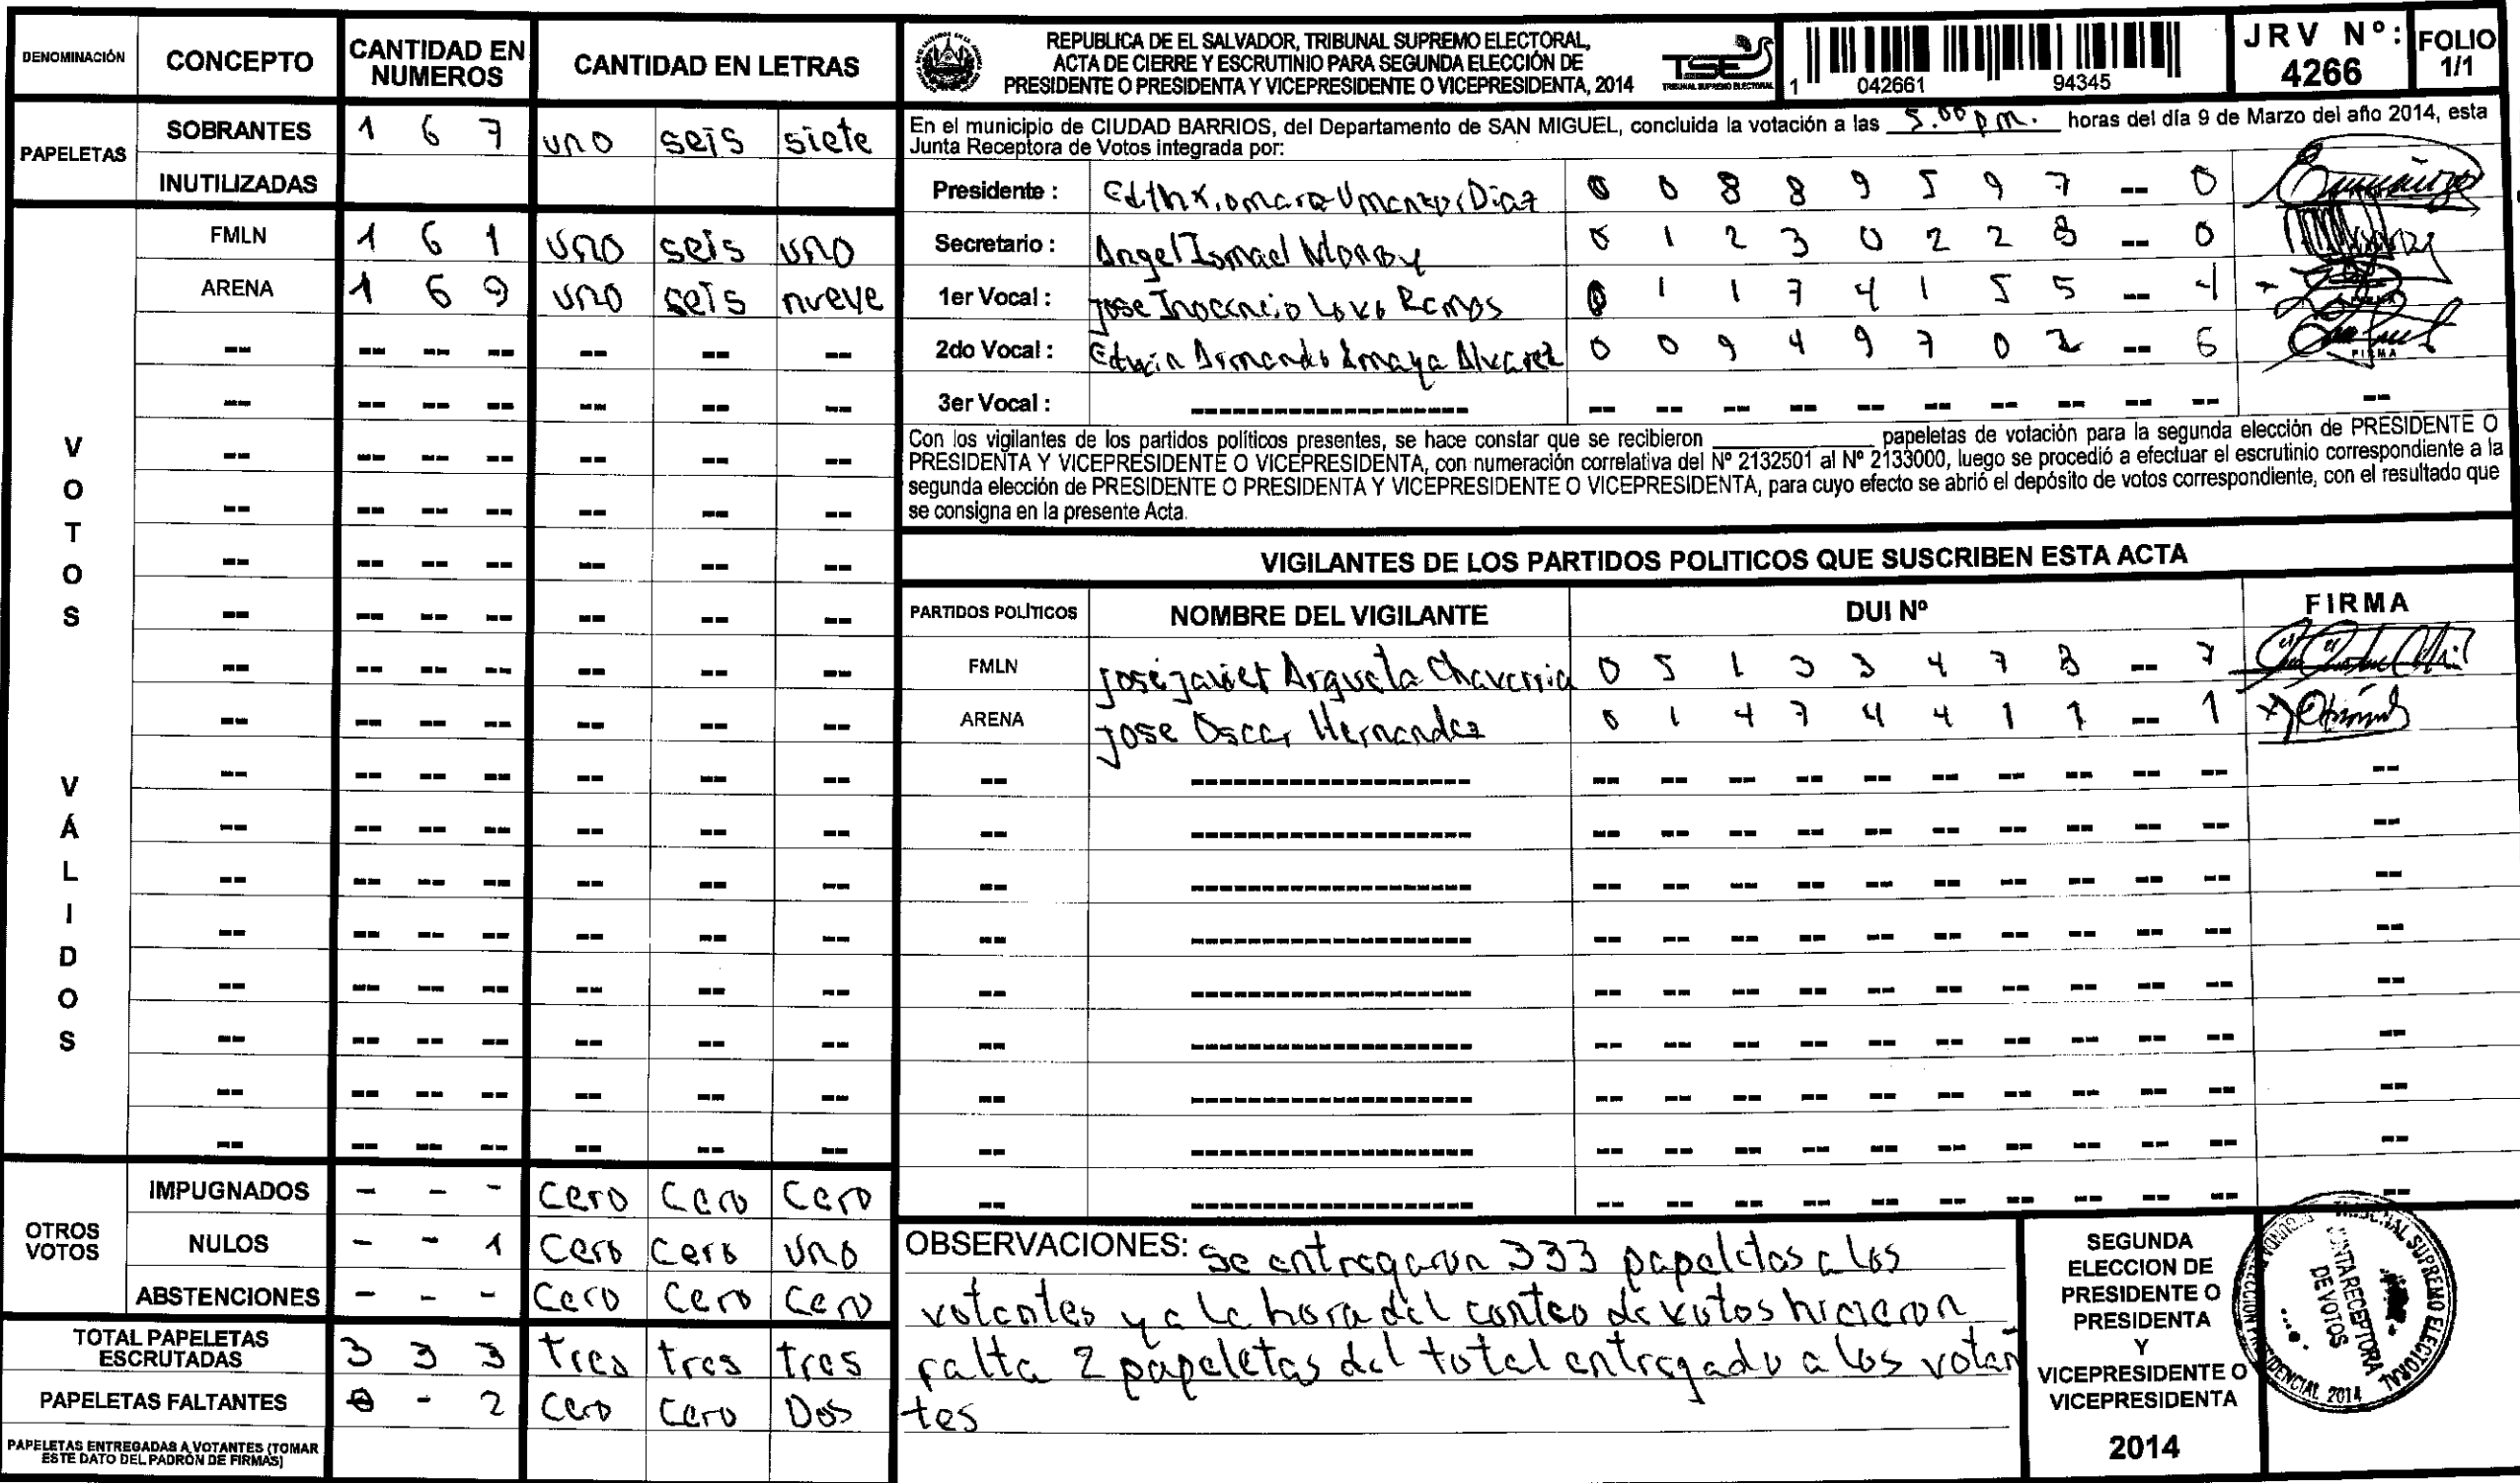 DENOMINACIÓN CONCEPTO CANTIDAD EN NUMEROS CANTIDAD EN LETRAS
PAPELETAS
SOBRANTES 1 6 7 uno seis siete
INUTILIZADAS
VOTOS VÁLIDOS
FMLN 1 6 1 uno seis uno
ARENA 1 6 9 uno seis nueve
OTROS VOTOS
IMPUGNADOS - - - Cero Cero Cero
NULOS - - 1 Cero Cero uno
ABSTENCIONES - - - Cero Cero Cero
TOTAL PAPELETAS ESCRUTADAS 3 3 3 tres tres tres
PAPELETAS FALTANTES 0 - 2 Cero Cero Dos
PAPELETAS ENTREGADAS A VOTANTES (TOMAR
ESTE DATO DEL PADRÓN DE FIRMAS)
REPUBLICA DE EL SALVADOR, TRIBUNAL SUPREMO ELECTORAL,
ACTA DE CIERRE Y ESCRUTINIO PARA SEGUNDA ELECCIÓN DE
PRESIDENTE O PRESIDENTA Y VICEPRESIDENTE O VICEPRESIDENTA, 2014
TSE
TRIBUNAL SUPREMO ELECTORAL
1 042661 94345
JRV Nº: 4266
FOLIO 1/1
En el municipio de CIUDAD BARRIOS, del Departamento de SAN MIGUEL, concluida la votación a las 5.00 p.m. horas del día 9 de Marzo del año 2014, esta
Junta Receptora de Votos integrada por:
Presidente : Edith Xiomara Umanzor Diaz 0 0 8 8 9 5 9 7 -- 0
Secretario : Angel Ismael 0 1 2 3 0 2 2 8 -- 0
1er Vocal : Jose Inocencio Lovo Ramos 0 1 1 7 4 1 5 5 -- 4
2do Vocal : Edwin Armando Amaya Alvarez 0 0 9 4 9 7 0 2 -- 6
FIRMA
3er Vocal :
Con los vigilantes de los partidos políticos presentes, se hace constar que se recibieron ________ papeletas de votación para la segunda elección de PRESIDENTE O
PRESIDENTA Y VICEPRESIDENTE O VICEPRESIDENTA, con numeración correlativa del Nº 2132501 al Nº 2133000, luego se procedió a efectuar el escrutinio correspondiente a la
segunda elección de PRESIDENTE O PRESIDENTA Y VICEPRESIDENTE O VICEPRESIDENTA, para cuyo efecto se abrió el depósito de votos correspondiente, con el resultado que
se consigna en la presente Acta.
VIGILANTES DE LOS PARTIDOS POLITICOS QUE SUSCRIBEN ESTA ACTA
PARTIDOS POLÍTICOS NOMBRE DEL VIGILANTE DUI Nº FIRMA
FMLN José javier Argueta Chaverria 0 5 1 3 3 4 7 8 -- 7
ARENA jose Oscar Hernandez 0 1 4 7 4 4 1 1 -- 1
OBSERVACIONES: Se entregaron 333 papeletas a los
votantes y a la hora del conteo de votos hicieron
falta 2 papeletas del total entregado a los votan
tes
SEGUNDA
ELECCION DE
PRESIDENTE O
PRESIDENTA
Y
VICEPRESIDENTE O
VICEPRESIDENTA
2014
TRIBUNAL SUPREMO ELECTORAL
JUNTA RECEPTORA
DE VOTOS
SEGUNDA ELECCION PRESIDENCIAL 2014